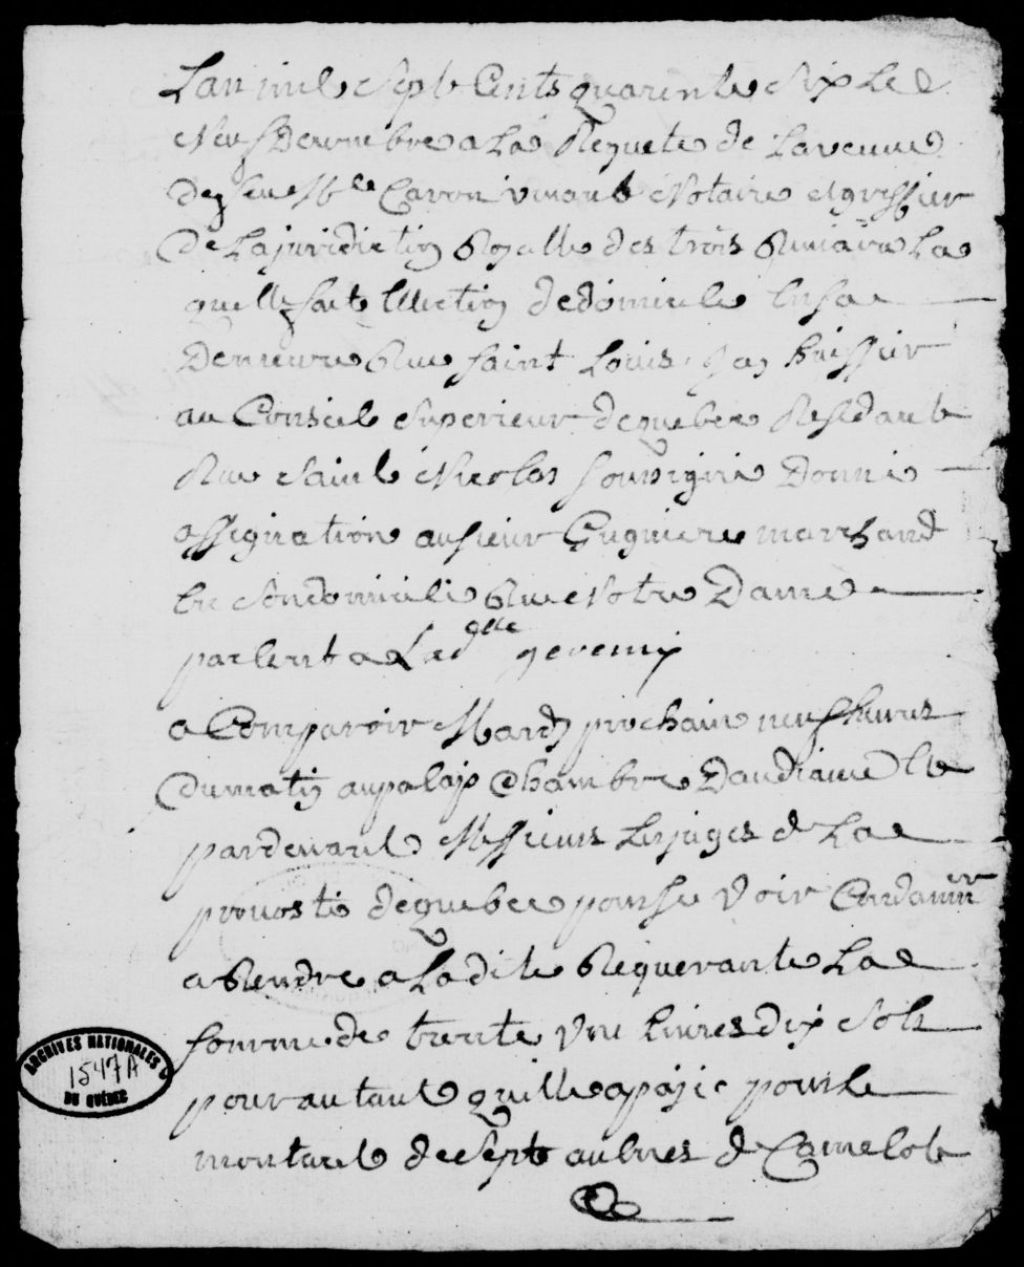 Lan mil Sept Cents quarente Six Le
Neuf Decembre a La Requete de Laveuve
de feu Mr Caron vivant Notaire et greffier
De La juridiction Royalle des trois Rivière La
quelle fait Election de domicile En sa
Demeure Rue Saint Louis, Jay huissier
au Conseil Superieur de quebec Residant
Rue Saint Nicolas Soussigné Donné
assignation au sieur marchand
En Son domicile Rue Notre Dame
parlent a La dlle
a Comparoir Mardy prochain neuf heures
Du matin au palais Chambre Daudiance Et
pardevant Messieurs Les juges de La
prevosté de quebec pour se Voir Condamner
a Rendre a La dite Requerante La
somme de trente Une livres dix Sols
pour autant quelle a payé pour le
montant de Sept aulnes de Camelot
ARCHIVES NATIONALES
1547A
DU QUÉBEC